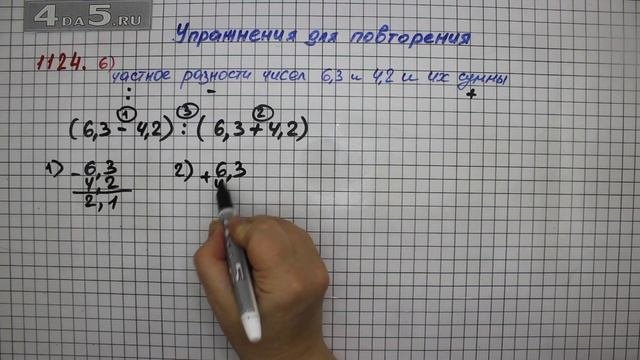 4DA5.RU
Упражнения для повторения
1124. б)
частное разности чисел 6,3 и 4,2 и их суммы
: - +
1 3 2
(6,3 - 4,2) : (6,3 + 4,2)
1) - 6,3 2) + 6,3
4,2 4
2,1